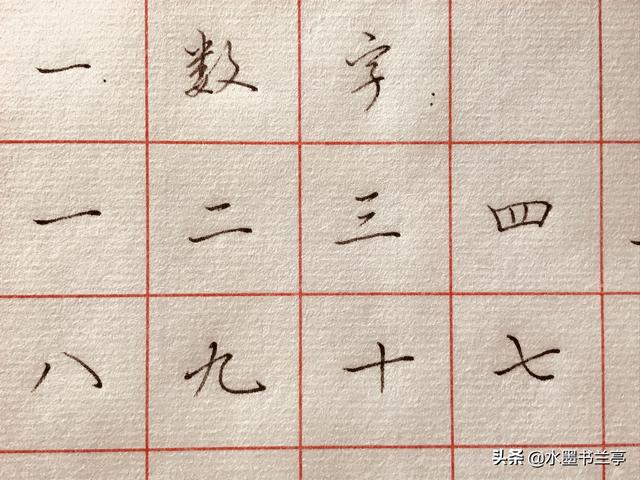 一.数字:
一二三四
八九十七
头条 @水墨书兰亭